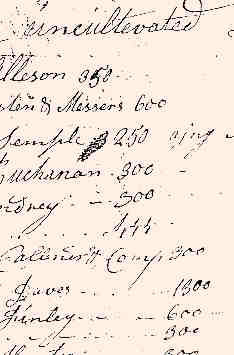 uncultivated
lleson 350
& Messers 600
Semple 250
Buchanan 300
dney 300
144
& Comp 300
Javes 1300
Finley 600
300